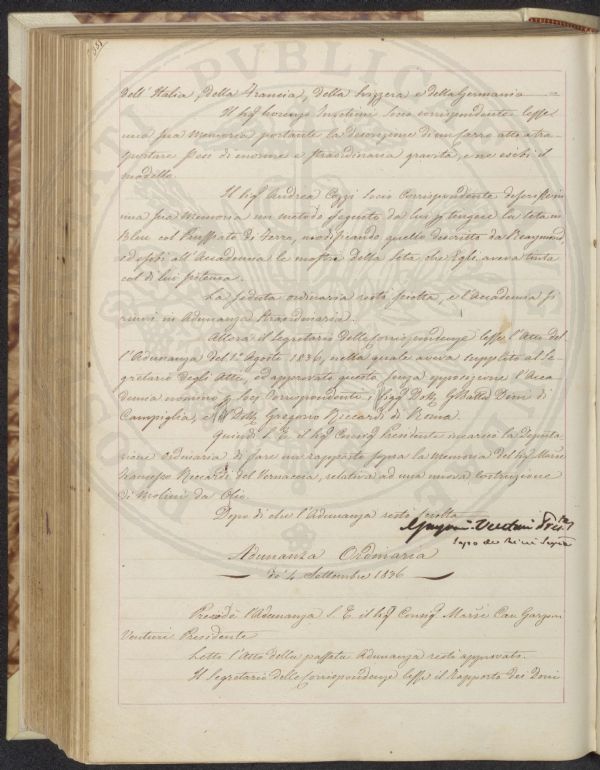 dell'Italia, della Francia, della Svizzera e della Germania
Il Sig. Lorenzo Socio corrispondente lesse
una sua Memoria portante la descrizione di un Carro atto a tra-
sportare Pesi di enorme e straordinaria gravità, e ne esibì il
modello
Il Sig. Andrea Cozzi Socio Corrispondente descrisse in
una sua Memoria un metodo seguito da lui p tingere la Seta in
Bleu col Prussiato di Ferro, modificando quello descritto da Raymond,
ed esibì all'Accademia le mostre della Seta, che Egli aveva tinta
col di lui sistema.
La seduta ordinaria restò sciolta, e l'Accademia si
riunì in Adunanza Straordinaria.
Allora il Segretario delle Corrispondenze lesse l'Atto del-
l'Adunanza del 1º Agosto 1836, nella quale aveva supplito al Se-
gretario degli Atti, ed approvato questo senza opposizione l'Acca-
demia nominò p Socj Corrispondenti i Sigg Dott. Gio Batta Dini di
Campiglia, e Dott. Gregorio Riccardi di Roma.
Quindi S. E. il Sig. Consig. Presidente incaricò la Deputa-
zione ordinaria di fare un rapporto sopra la Memoria del Sig. March.
Riccardi del Vernaccia, relativa ad una nuova Costruzione
di Molini da Olio.
Dopo di che l'Adunanza restò sciolta
Venturi
Adunanza Ordinaria
de' 4 Settembre 1836
Presedè l'Adunanza S. E. il Sig. Consig. March. Cav. Garzoni
Venturi Presidente
Letto l'Atto della passata Adunanza restò approvato.
Il Segretario delle Corrispondenze lesse il Rapporto dei Doni